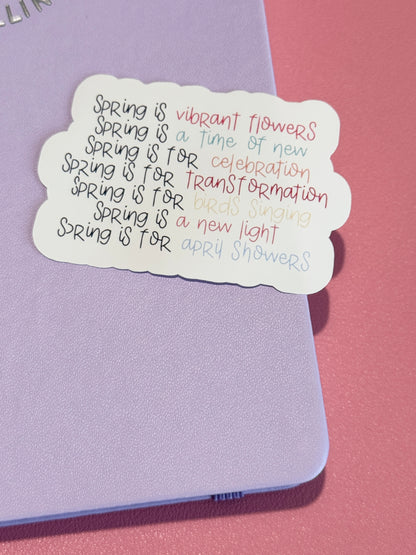 Spring is vibrant flowers
Spring is a time of new
Spring is for celebration
Spring is for transformation
Spring is for birds singing
Spring is a new light
Spring is for april showers